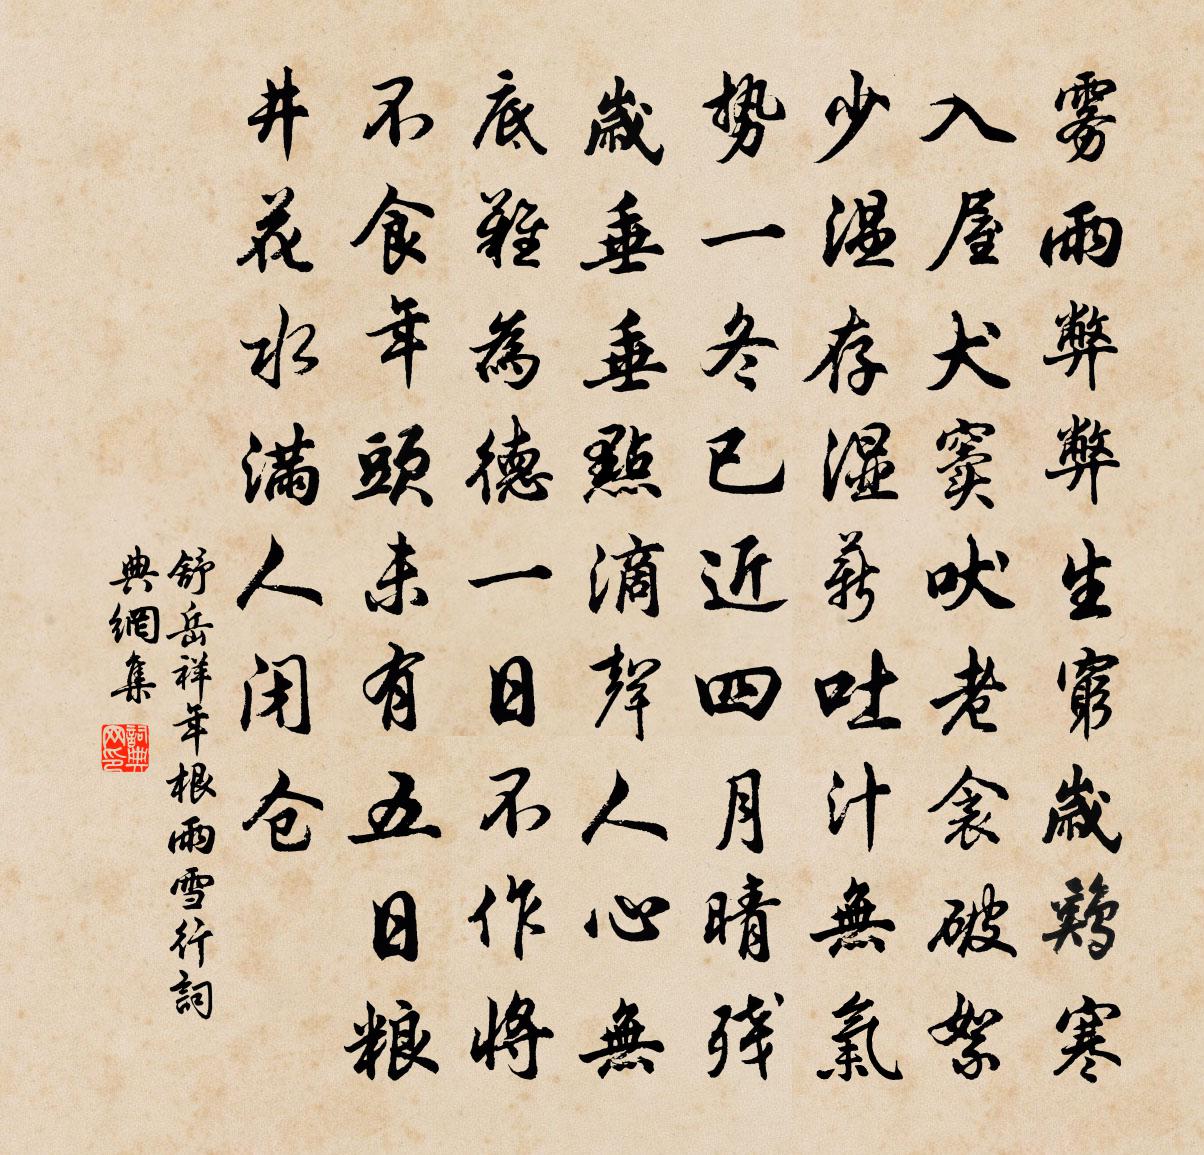 雾雨弊弊生窮歲鷄寒
入屋犬窦吠老衾破絮
少温存湿薪吐汁無氣
勢一冬已近四月晴残
歲垂垂點滴聲人心無
底難為德一日不作將
不食年年頭未有五日粮
井花水满人闭仓
舒岳祥年根雨雪行詞
典網集
詞典网印